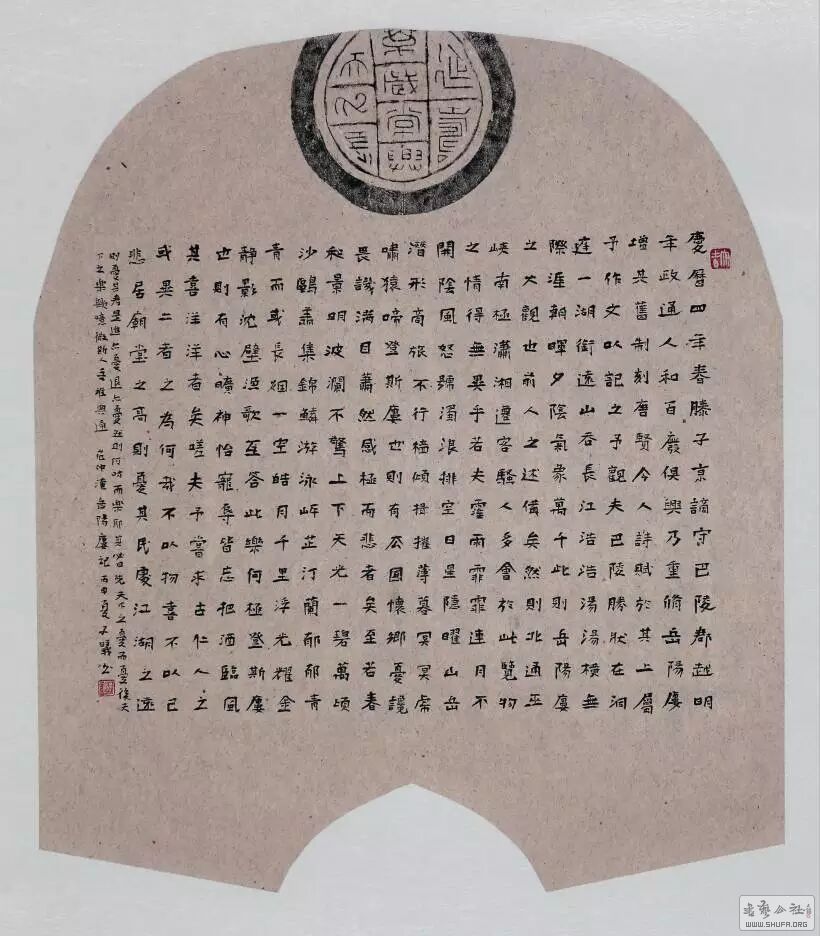 延壽
萬歲常與
天久長
慶曆四年春滕子京謫守巴陵郡越明
年政通人和百廢俱興乃重脩岳陽廔
增其舊制刻唐賢今人詩賦於其上屬
予作文以記之予觀夫巴陵勝狀在洞
庭一湖銜遠山吞長江浩浩湯湯橫無
際涯朝暉夕陰氣象萬千此則岳陽廔
之大觀也前人之述備矣然則北通巫
峽南極瀟湘遷客騷人多會於此覽物
之情得無異乎若夫霪雨霏霏連月不
開陰風怒號濁浪排空日星隱曜山岳
潛形商旅不行檣傾楫摧薄暮冥冥虎
嘯猿啼登斯廔也則有去國懷鄉憂讒
畏譏滿目蕭然感極而悲者矣至若春
和景明波瀾不驚上下天光一碧萬頃
沙鷗翕集錦鱗游泳岸芷汀蘭郁郁青
青而或長煙一空皓月千里浮光耀金
靜影沈璧漁歌互答此樂何極登斯廔
也則有心曠神怡寵辱皆忘把酒臨風
其喜洋洋者矣嗟夫予嘗求古仁人之
或異二者之為何哉不以物喜不以己
悲居廟堂之高則憂其民處江湖之遠
則憂其君是進亦憂退亦憂然則何時而樂耶其必曰先天下之憂而憂後天
下之樂歟噫微斯人吾誰與歸 范仲淹岳陽廔記 丙申夏子
WWW.SHUFA.ORG